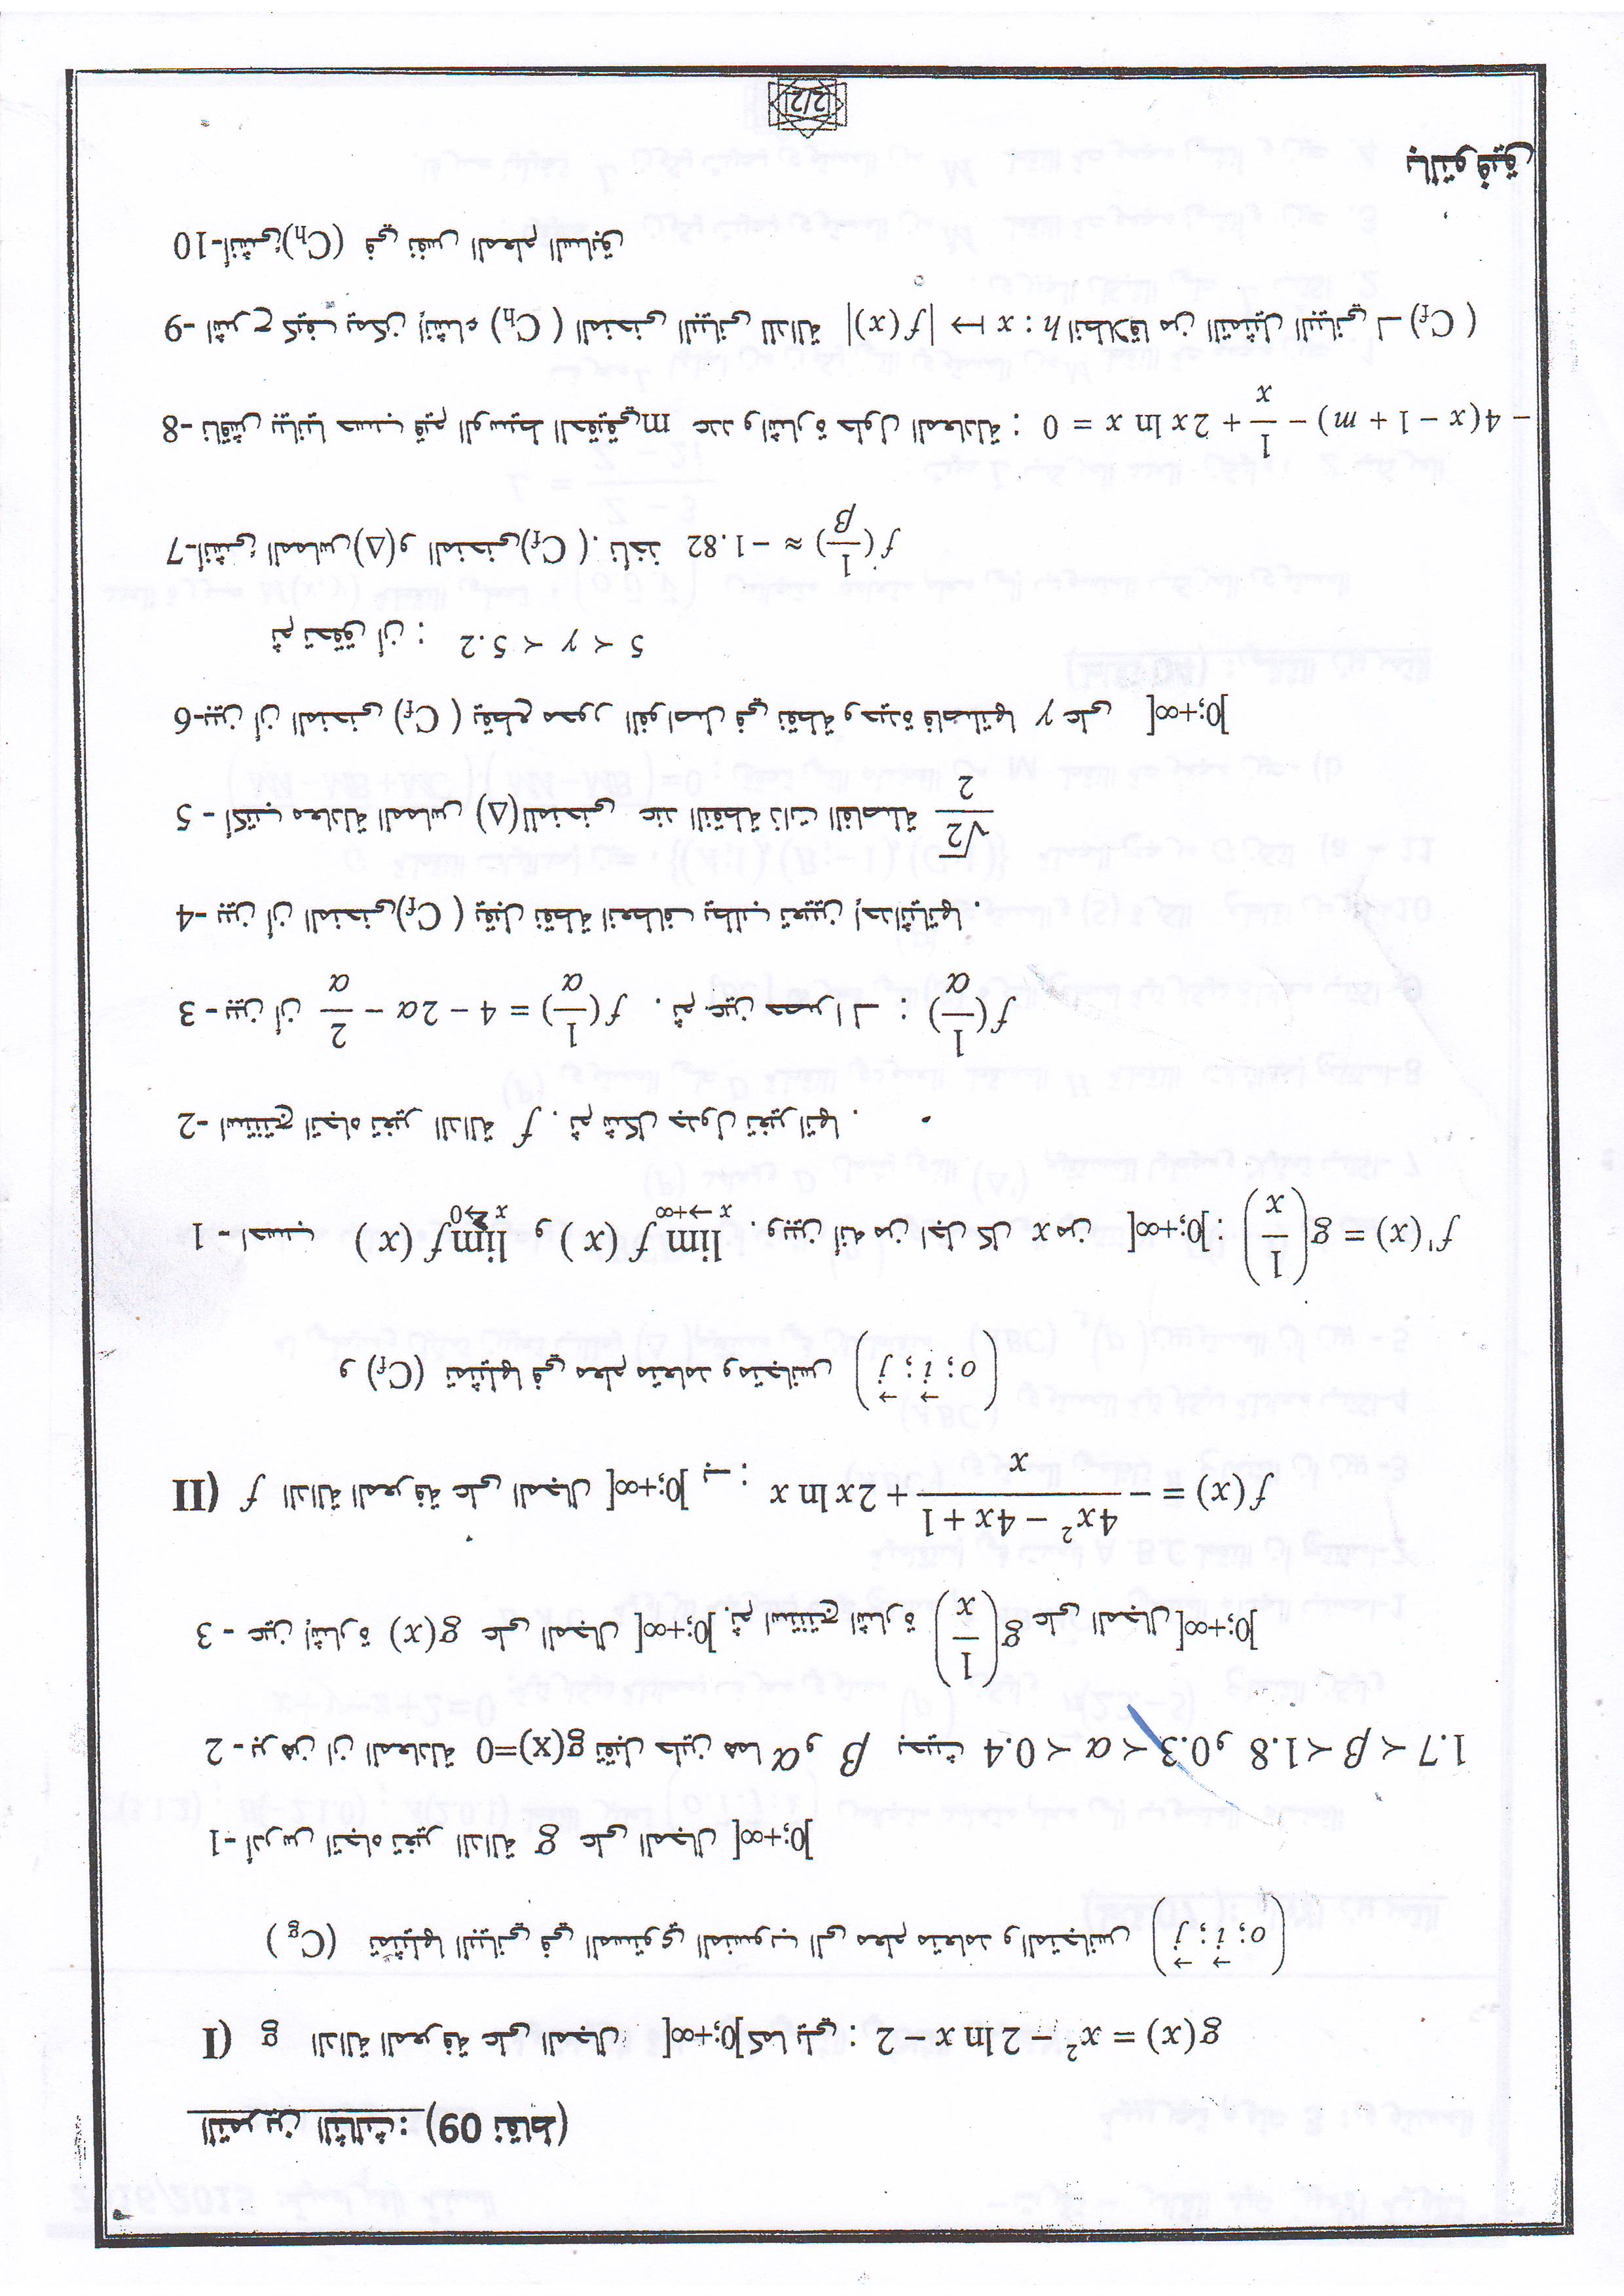 التمرين الثالث : (09 نقاط)
I) g الدالة المعرفة على المجال ]0;+∞[ كما يلي : g(x) = x² − 2 ln x − 2
(Cg) تمثيلها البياني في المستوي المنسوب الى معلم متعامد والمتجانس (o; i⃗; j⃗)
1- أدرس اتجاه تغير الدالة g على المجال ]0;+∞[
2 - برهن ان المعادلة g(x)=0 تقبل حلين هما α و β بحيث 0.3 < α < 0.4 و 1.7 < β < 1.8
3 - عين إشارة g(x) على المجال ]0;+∞[ . ثم استنتج اشارة g(1/x) على المجال ]0;+∞[
II) f الدالة المعرفة على المجال ]0;+∞[ بـ : f(x) = − (4x² − 4x + 1)/x + 2x ln x
و (Cf) تمثيلها في معلم متعامد ومتجانس (o; i⃗; j⃗)
1 - احسب lim f(x) x→0 و lim f(x) x→+∞ . وبين أنه من اجل كل x من ]0;+∞[ : f'(x) = g(1/x)
2- استنتج اتجاه تغير الدالة f . ثم شكل جدول تغيراتها .
3 - بين أن f(1/α) = 4 − 2α − 2/α . ثم عين حصرا لـ : f(1/α)
4- بين أن المنحنى (Cf) يقبل نقطة انعطاف يطلب تعيين إحداثياتها .
5 - أكتب معادلة المماس (Δ) للمنحنى عند النقطة ذات الفاصلة √2/2
6- بين أن المنحنى (Cf) يقطع محور الفواصل في نقطة وحيدة فاصلتها γ على ]0;+∞[
ثم تحقق أن : 5 < γ < 5.2
7- أنشئ المماس (Δ) و المنحنى (Cf) . ناخذ f(1/β) ≈ −1.82
8- ناقش بيانيا حسب قيم الوسيط الحقيقي m عدد واشارة حلول المعادلة : − 4(x − 1 + m) − 1/x + 2x ln x = 0
9- اشرح كيف يمكن إنشاء (Ch) المنحنى البياني للدالة h : x ↦ |f(x)| انطلاقا من التمثيل البياني لـ (Cf)
10- أنشئ (Ch) في نفس المعلم السابق
بالتوفيق
2/2